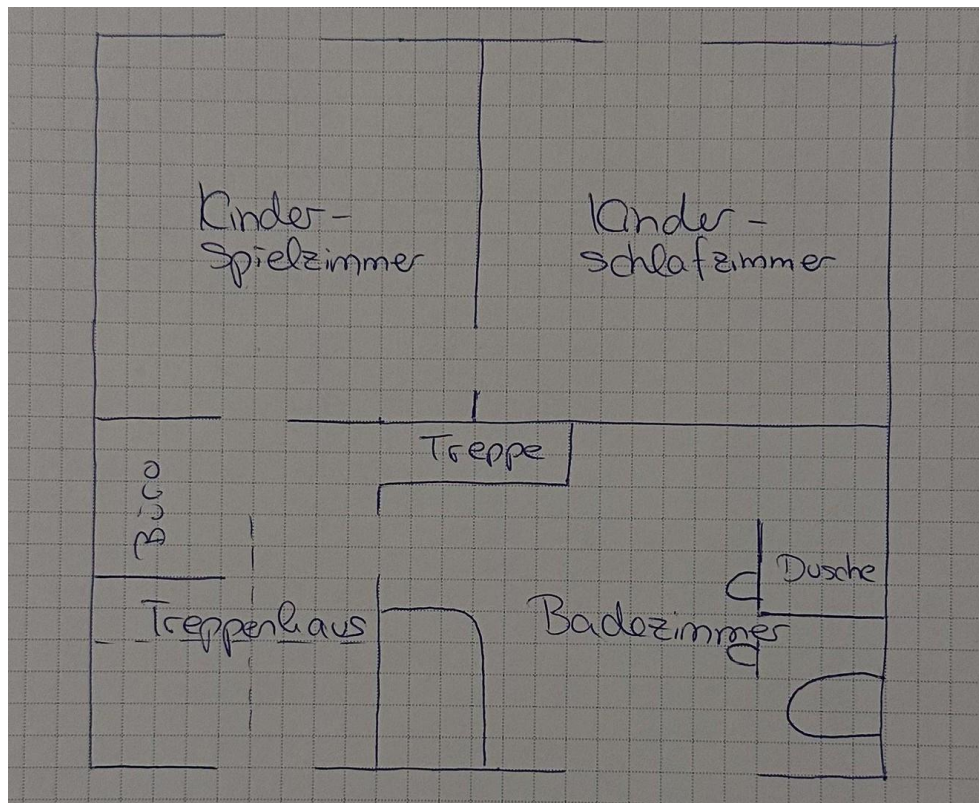 Kinder-
spielzimmer
Kinder-
schlafzimmer
Treppe
Büro
Dusche
Treppenhaus
Badezimmer